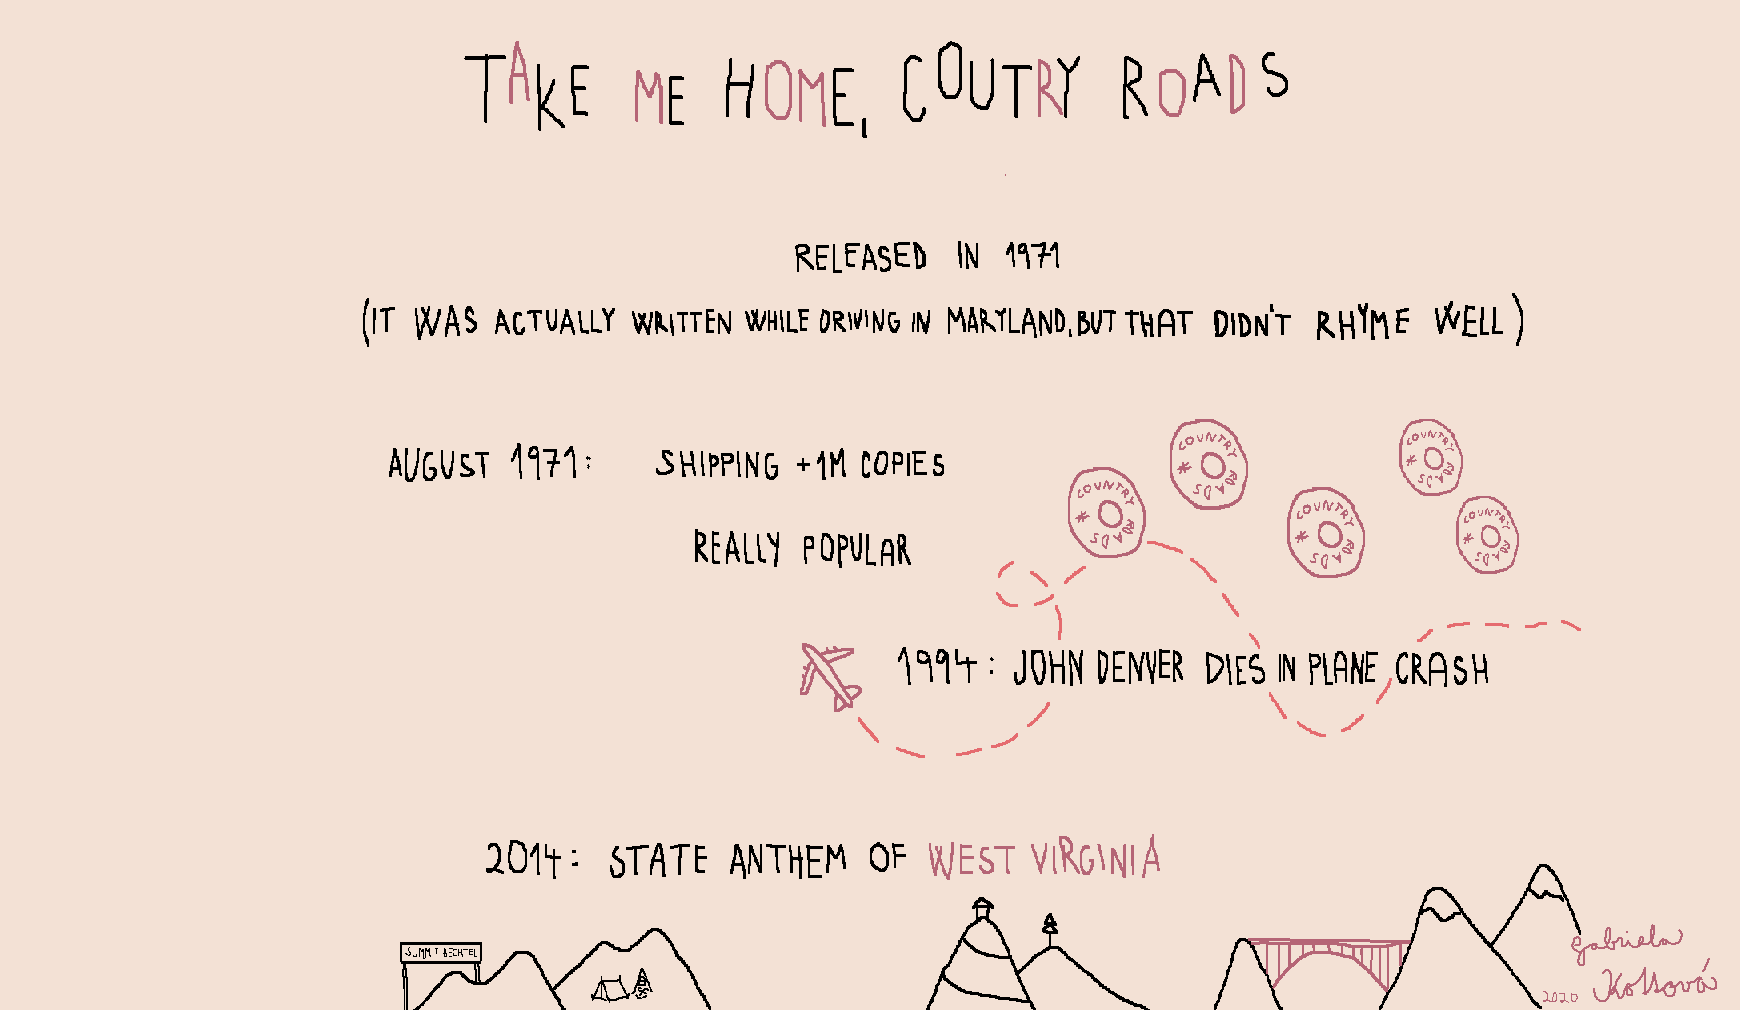 TAKE ME HOME, COUTRY ROADS
RELEASED IN 1971
(IT WAS ACTUALLY WRITTEN WHILE DRIVING IN MARYLAND, BUT THAT DIDN'T RHYME WELL)
AUGUST 1971: SHIPPING +1M COPIES
REALLY POPULAR
COUNTRY ROADS *
COUNTRY ROADS *
COUNTRY ROADS *
COUNTRY ROADS *
COUNTRY ROADS *
1994: JOHN DENVER DIES IN PLANE CRASH
2014: STATE ANTHEM OF WEST VIRGINIA
SUMMIT BECHTEL
gabriela
2020